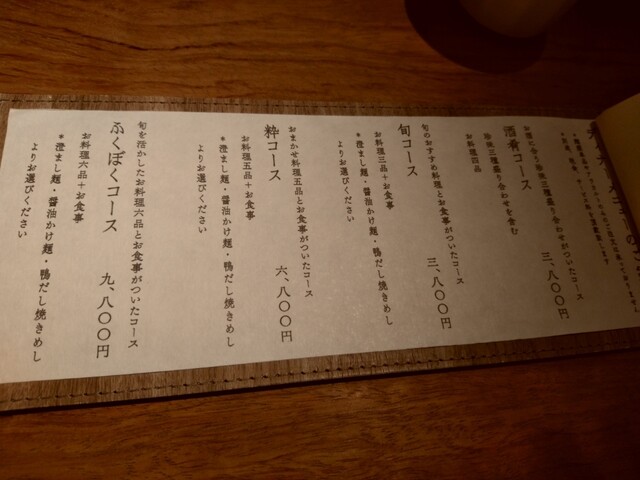 酒肴コース
お酒に合う珍味三種盛り合わせがついたコース
三、八〇〇円
珍味三種盛り合わせを含む
お料理四品
旬コース
旬のおすすめ料理とお食事がついたコース
三、八〇〇円
お料理三品＋お食事
＊澄まし麺・醤油かけ麺・鴨だし焼きめし
よりお選びください
粋コース
おまかせ料理五品とお食事がついたコース
六、八〇〇円
お料理五品＋お食事
＊澄まし麺・醤油かけ麺・鴨だし焼きめし
よりお選びください
ふくぼくコース
旬を活かしたお料理六品とお食事がついたコース
九、八〇〇円
お料理六品＋お食事
＊澄まし麺・醤油かけ麺・鴨だし焼きめし
よりお選びください